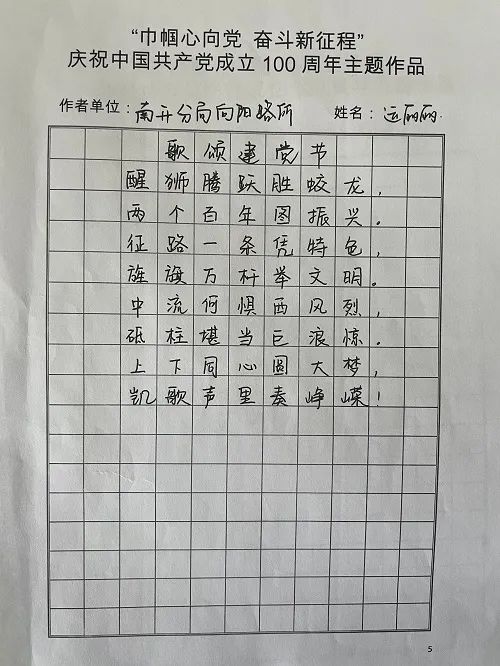 “巾帼心向党 奋斗新征程”
庆祝中国共产党成立100周年主题作品
作者单位：南开分局向阳路所 姓名：远丽丽
歌颂建党节
醒狮腾跃胜蛟龙，
两个百年图振兴。
征路一条凭特色，
旌旗万杆举文明。
中流何惧西风烈，
砥柱堪当巨浪惊。
上下同心圆大梦，
凯歌声里奏峥嵘！
5